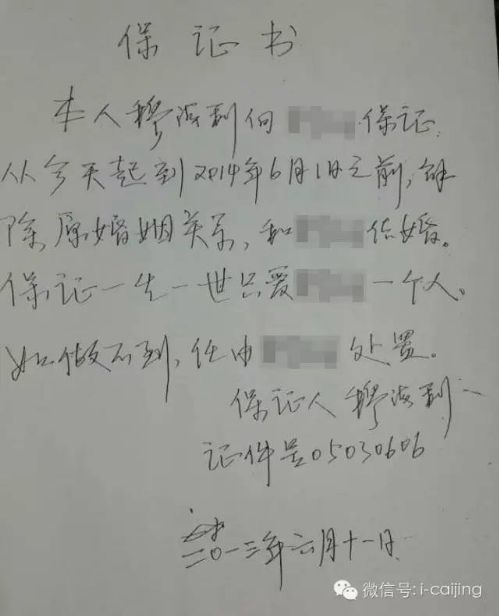 保证书
本人穆海利向 保证
从今天起到2014年6月1日之前,解
除原婚姻关系,和 结婚。
保证一生一世只爱 一个人。
如做不到,任由 处置。
保证人 穆海利
证件号05030606
二〇一三年六月十一日
微信号: i-caijing